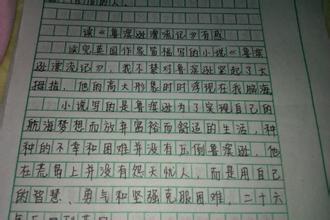 的人。
读《鲁滨逊漂流记》有感
读完英国作家笛福写的小说《鲁滨
逊漂流记》，我不禁对鲁滨逊竖起了大
拇指，他的高大形象时时浮现在我脑海
小说写的是鲁滨逊为了实现自己的
航海梦想而放弃富裕而舒适的生活，种
种的不幸和困难并没有倒鲁滨逊，他
在荒岛上并没有怨天忧人，而是用自己
的智慧、勇气和坚强克服困难，二十六